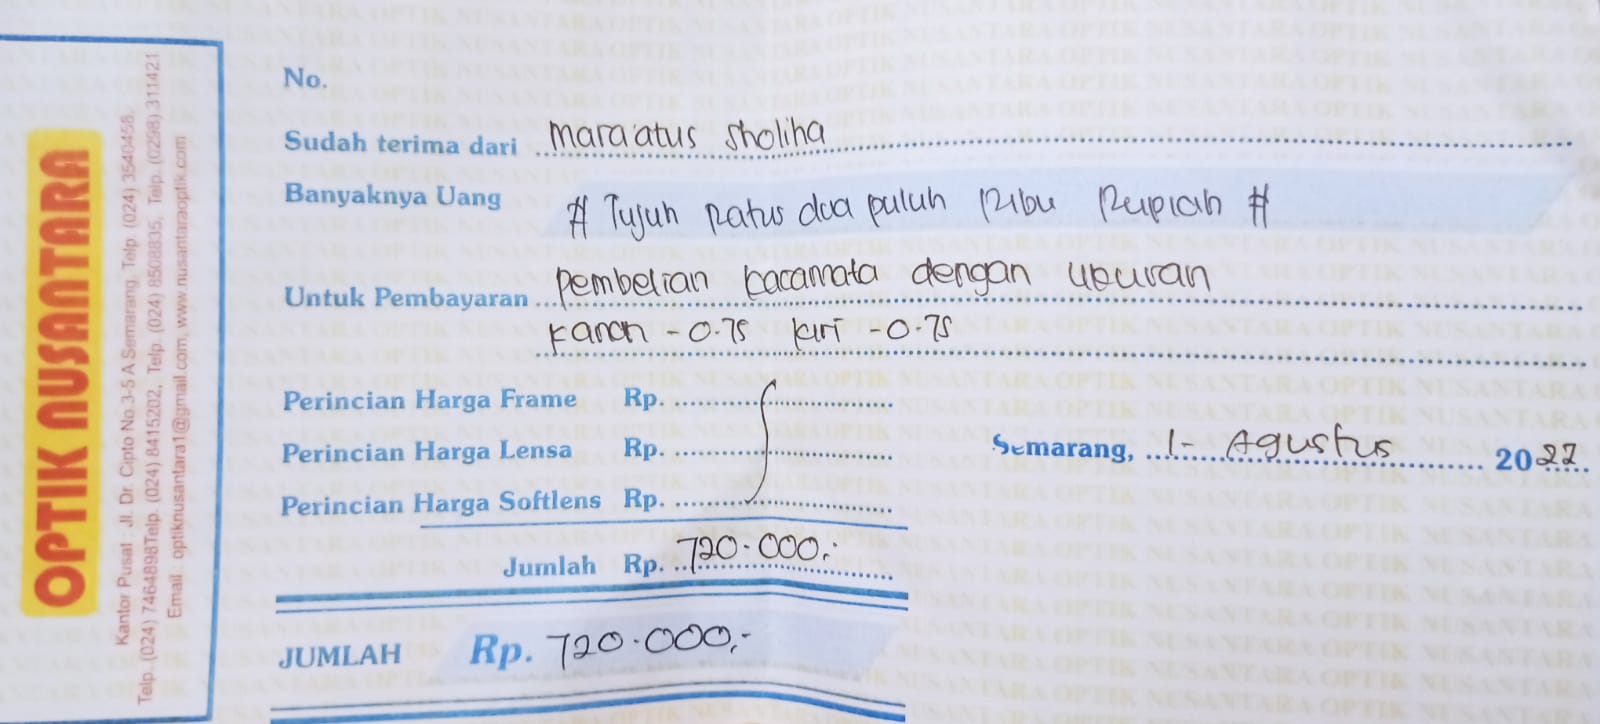 OPTIK NUSANTARA
Kantor Pusat : Jl. Dr. Cipto No.3-5 A Semarang, Telp. (024) 3540458,
Telp. (024) 7464898 Telp. (024) 8415202, Telp. (024) 8508835, Telp. (0298) 311421
Email : optiknusantara1@gmail.com, www.nusantaraoptik.com
No.
Sudah terima dari mara'atus sholiha
Banyaknya Uang # Tujuh ratus dua puluh Ribu Rupiah #
Untuk Pembayaran pembelian kacamata dengan ukuran
kanan - 0.75 kiri - 0.75
Perincian Harga Frame Rp.
Perincian Harga Lensa Rp.
Semarang, 1 - Agustus 2022.
Perincian Harga Softlens Rp.
Jumlah Rp. 720.000,-
JUMLAH Rp. 720.000,-